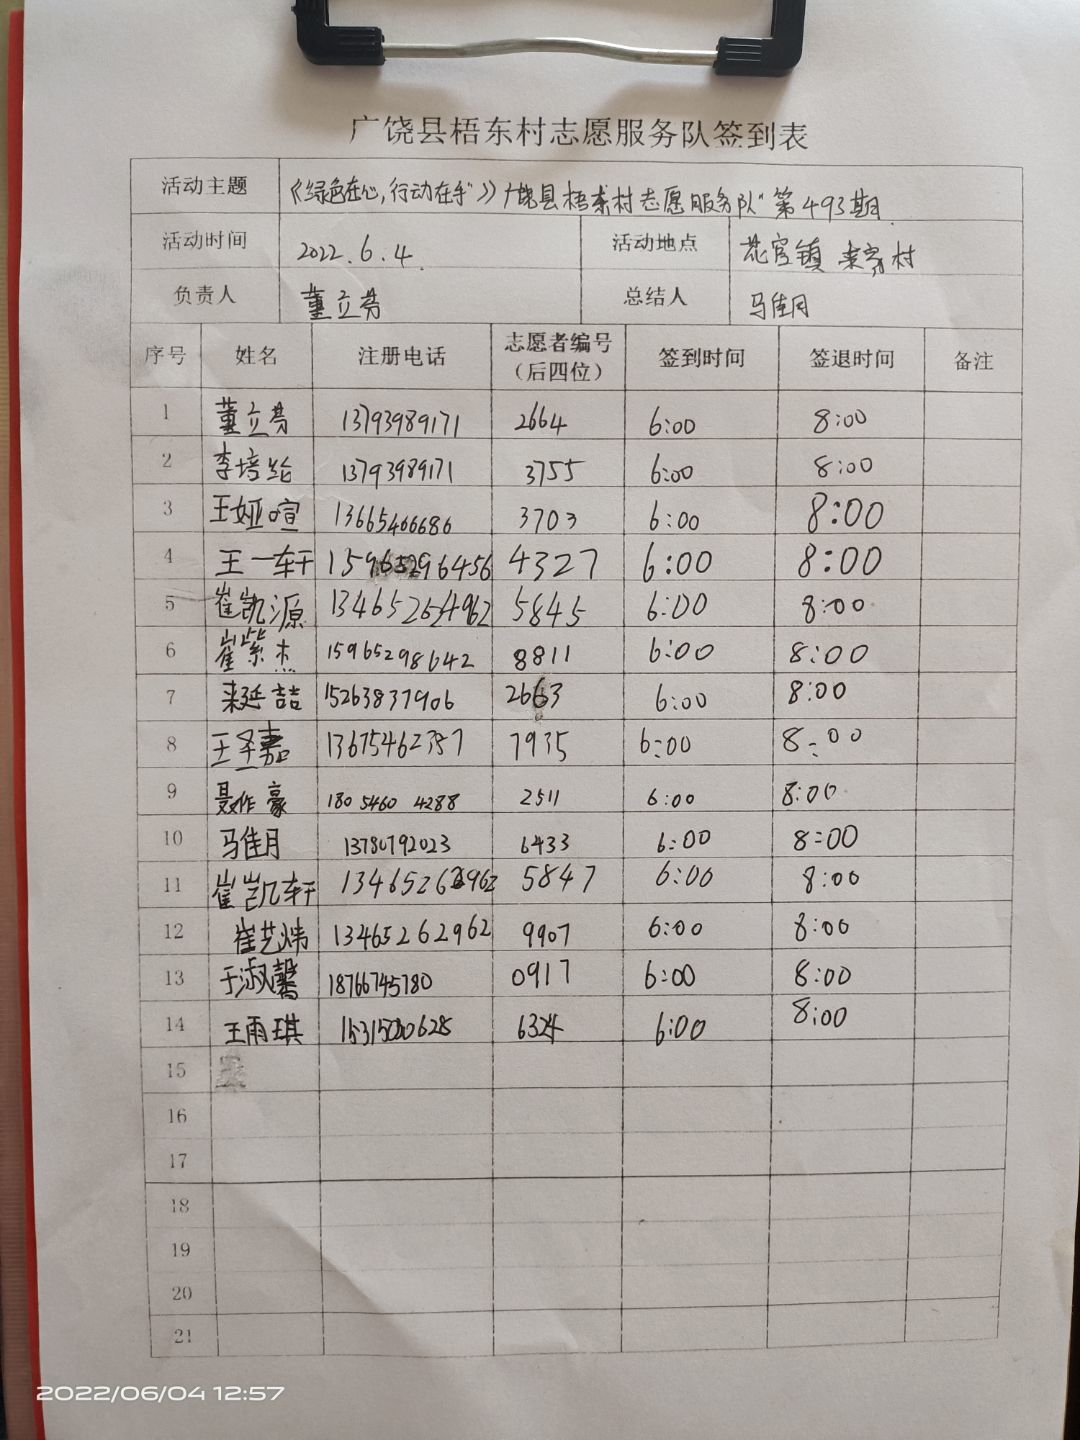 广饶县梧东村志愿服务队签到表
活动主题 《绿色在心,行动在手》广饶县梧东村志愿服务队"第493期
活动时间 2022.6.4. 活动地点 花官镇 村
负责人 董立芬 总结人 马佳月
序号 姓名 注册电话 志愿者编号（后四位） 签到时间 签退时间 备注
1 董立芬 13793989171 2664 6:00 8:00
2 李培纶 13793989171 3755 6:00 8:00
3 王娅喧 13665466686 3703 6:00 8:00
4 王一轩 15965296456 4327 6:00 8:00
5 崔凯源 13465264962 5845 6:00 8:00
6 崔紫杰 15965298642 8811 6:00 8:00
7 延喆 15263837906 2663 6:00 8:00
8 王圣嘉 13675462757 7935 6:00 8:00
9 聂作豪 180 5460 4288 2511 6:00 8:00
10 马佳月 13780792023 6433 6:00 8:00
11 崔凯轩 13465262962 5847 6:00 8:00
12 崔艺炜 13465262962 9907 6:00 8:00
13 于淑馨 18766745780 0917 6:00 8:00
14 王雨琪 6324 6:00 8:00
15
16
17
18
19
20
21
2022/06/04 12:57